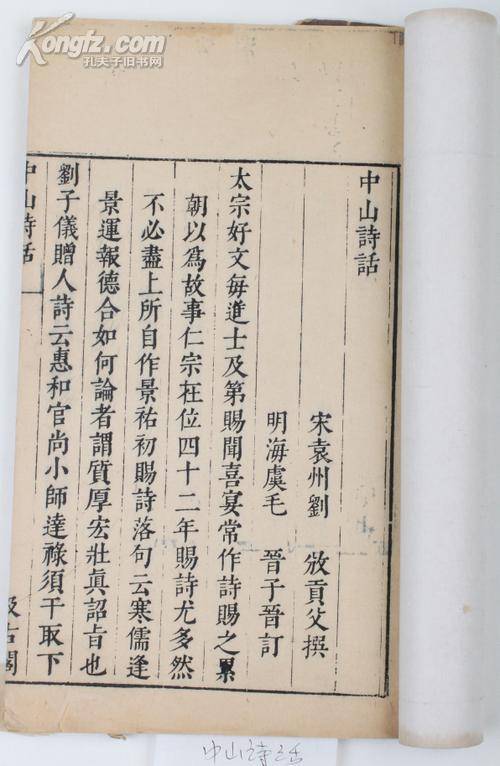 Kongfz.com
孔夫子旧书网
中山詩話
宋袁州劉　攽貢父撰
明海虞毛　晉子晉訂
太宗好文每進士及第賜聞喜宴常作詩賜之累
朝以爲故事仁宗在位四十二年賜詩尤多然
不必盡上所自作景祐初賜詩落句云寒儒逢
景運報德合如何論者謂質厚宏壯眞詔旨也
劉子儀贈人詩云惠和官尚小師達祿須干取下
中山詩話
汲古閣
中山诗话